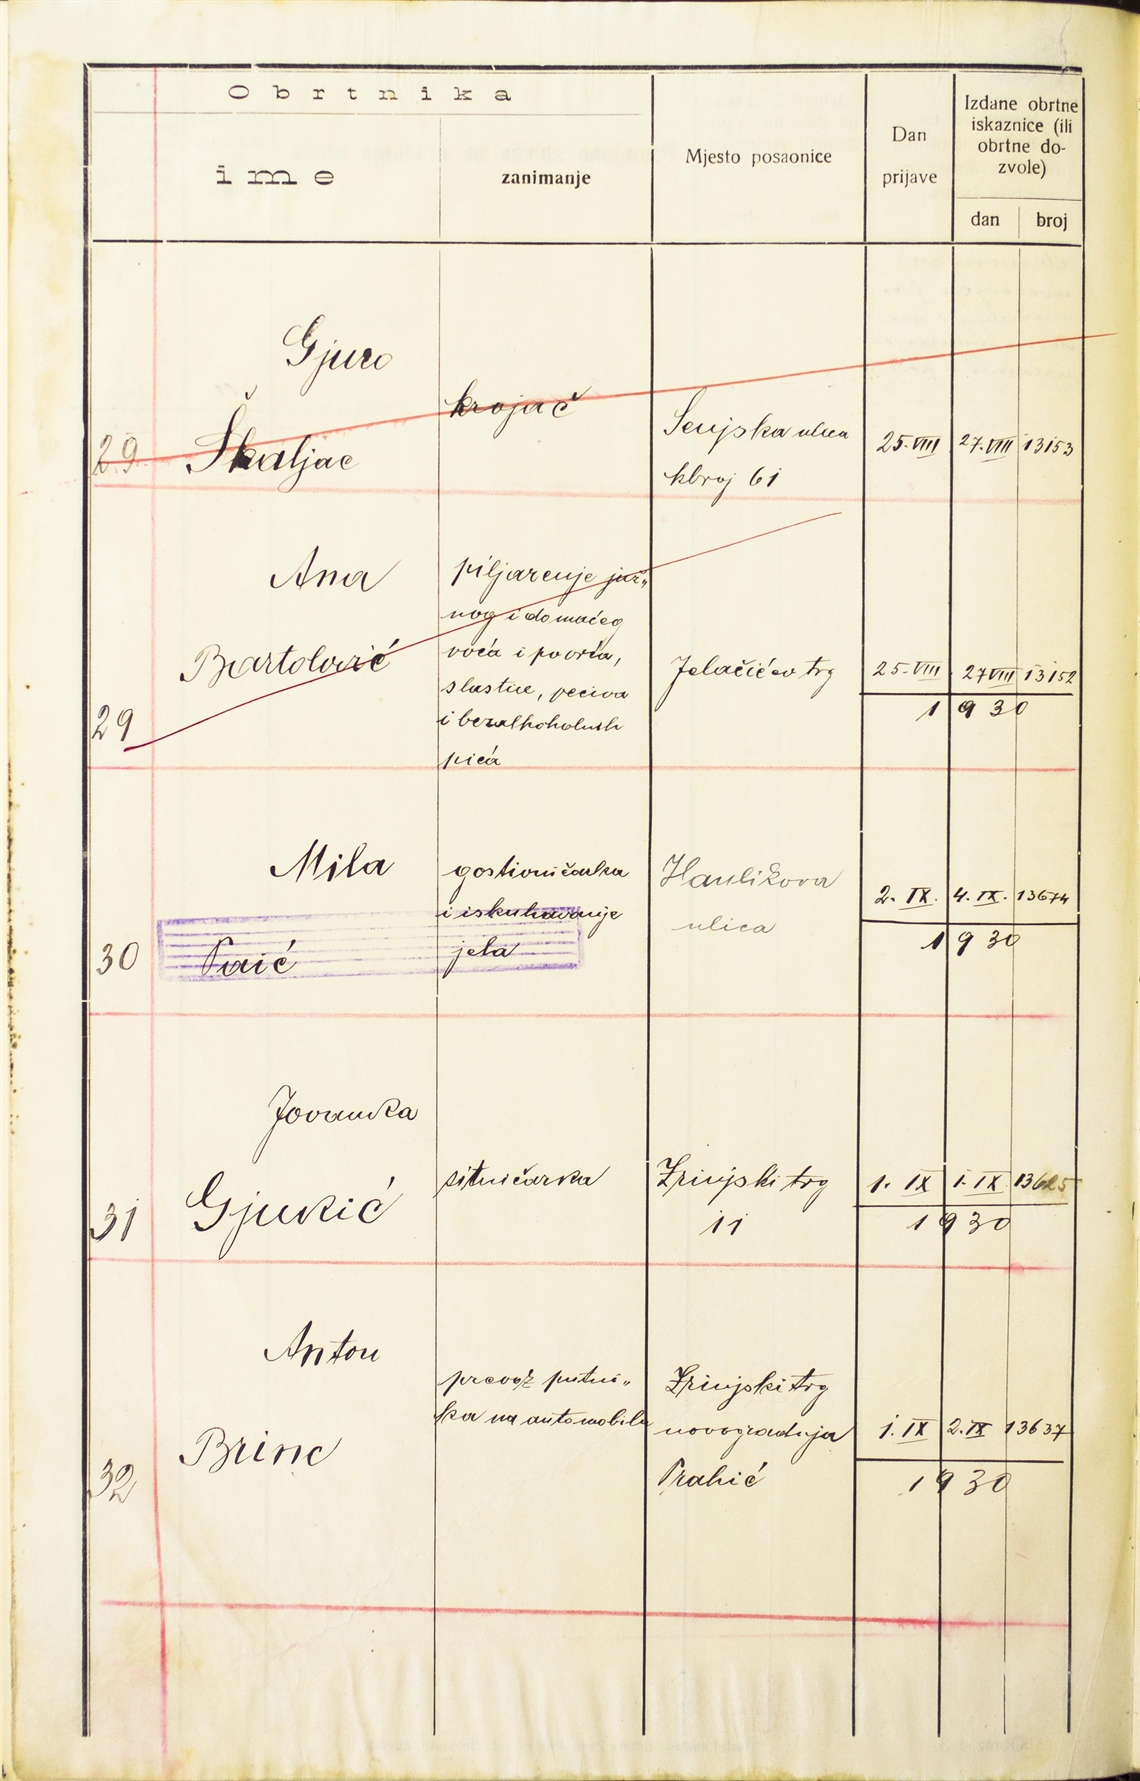 Obrtnika
ime
zanimanje
Mjesto posaonice
Dan
prijave
Izdane obrtne
iskaznice (ili
obrtne do-
zvole)
dan
broj
Gjuro
29 Škaljac
krojač
Senjska ulica
kbroj 61
25. VIII 27. VIII 13153
Ana
Bartolović
29
piljarenje juž„
nog i domaćeg
voća i povrća,
slastice, peciva
i bezalkoholnih
pića
Jelačićev trg
25. VIII 27 VIII 13152
1930
Mila
30 Paić
gostioničarka
i iskuhavanje
jela
Haulikova
ulica
2. IX. 4. IX. 13674
1930
Jovanka
31 Gjukić
sitničarka
Zrinjski trg
11
1. IX 1. IX 13625
1930
Anton
Brinc
32
prevoz putni„
ka na automobilu
Zrinjski trg
novogradnja
Prahić
1. IX 2. IX 13637
1930